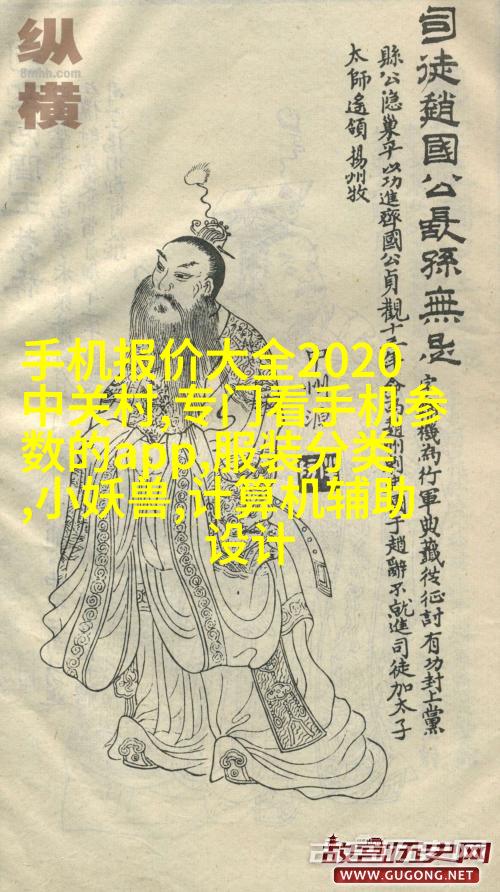 司徒趙國公長孫無忌
縣公隱巢平以功進齊國公貞觀十
太師遙領揚州牧
機為行軍典籤從征討有功封上黨
于趙辭不就進司徒加太子
纵横
8mhh.com
手机报价大全2020
中关村,专门看手机参
数的app,服装分类
,小妖兽,计算机辅助
设计
故宫历史网
WWW.GUGONG.NET